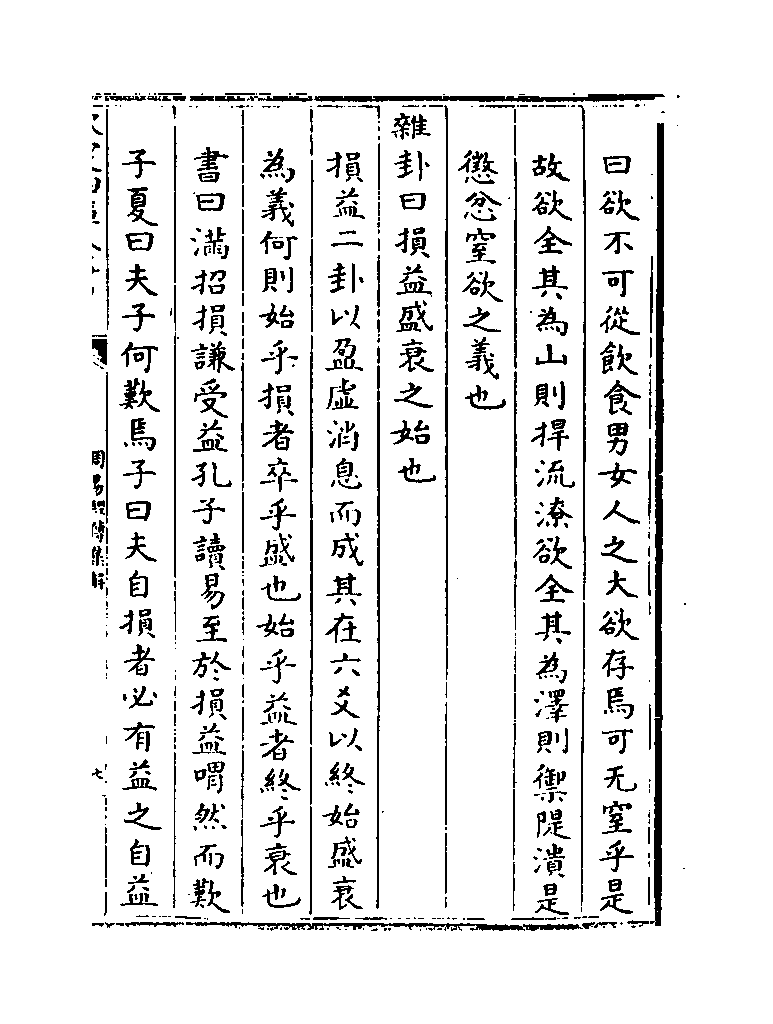 曰欲不可從飲食男女人之大欲存焉可无窒乎是
故欲全其為山則捍流潦欲全其為澤則禦隄潰是
懲忿窒欲之義也
雜卦曰損益盛衰之始也
損益二卦以盈虛消息而成其在六爻以終始盛衰
為義何則始乎損者卒乎盛也始乎益者終乎衰也
書曰滿招損謙受益孔子讀易至於損益喟然而歎
子夏曰夫子何歎焉子曰夫自損者必有益之自益
周易經傳集解
七